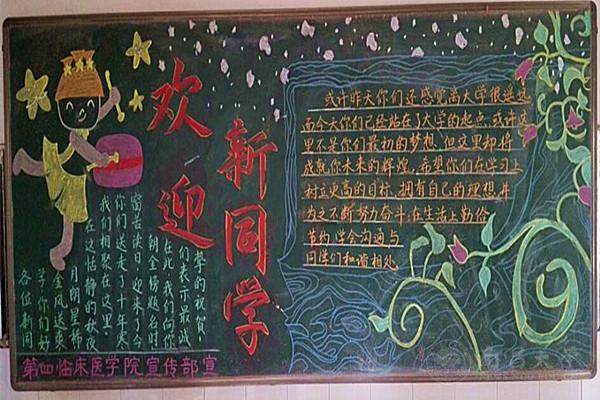 欢迎
新同学
各位新同
学:你们好
金风送爽
月朗星稀
在这恬静的秋夜
我们相聚在这里,
你们送走了十年寒
窗苦读日,迎来了今
朝金榜题名时
在此,我们向你
们表示最诚
挚的祝贺!
或许昨天你们还感觉离大学很遥远
而今天你们已经站在了大学的起点.或许这
里不是你们最初的梦想,但这里却将
成就你未来的辉煌,希望你们在学习上
树立更高的目标,拥有自己的理想并
为之不断努力奋斗.在生活上勤俭
节约 学会沟通与
同学们和谐相处
第四临床医学院宣传部宣